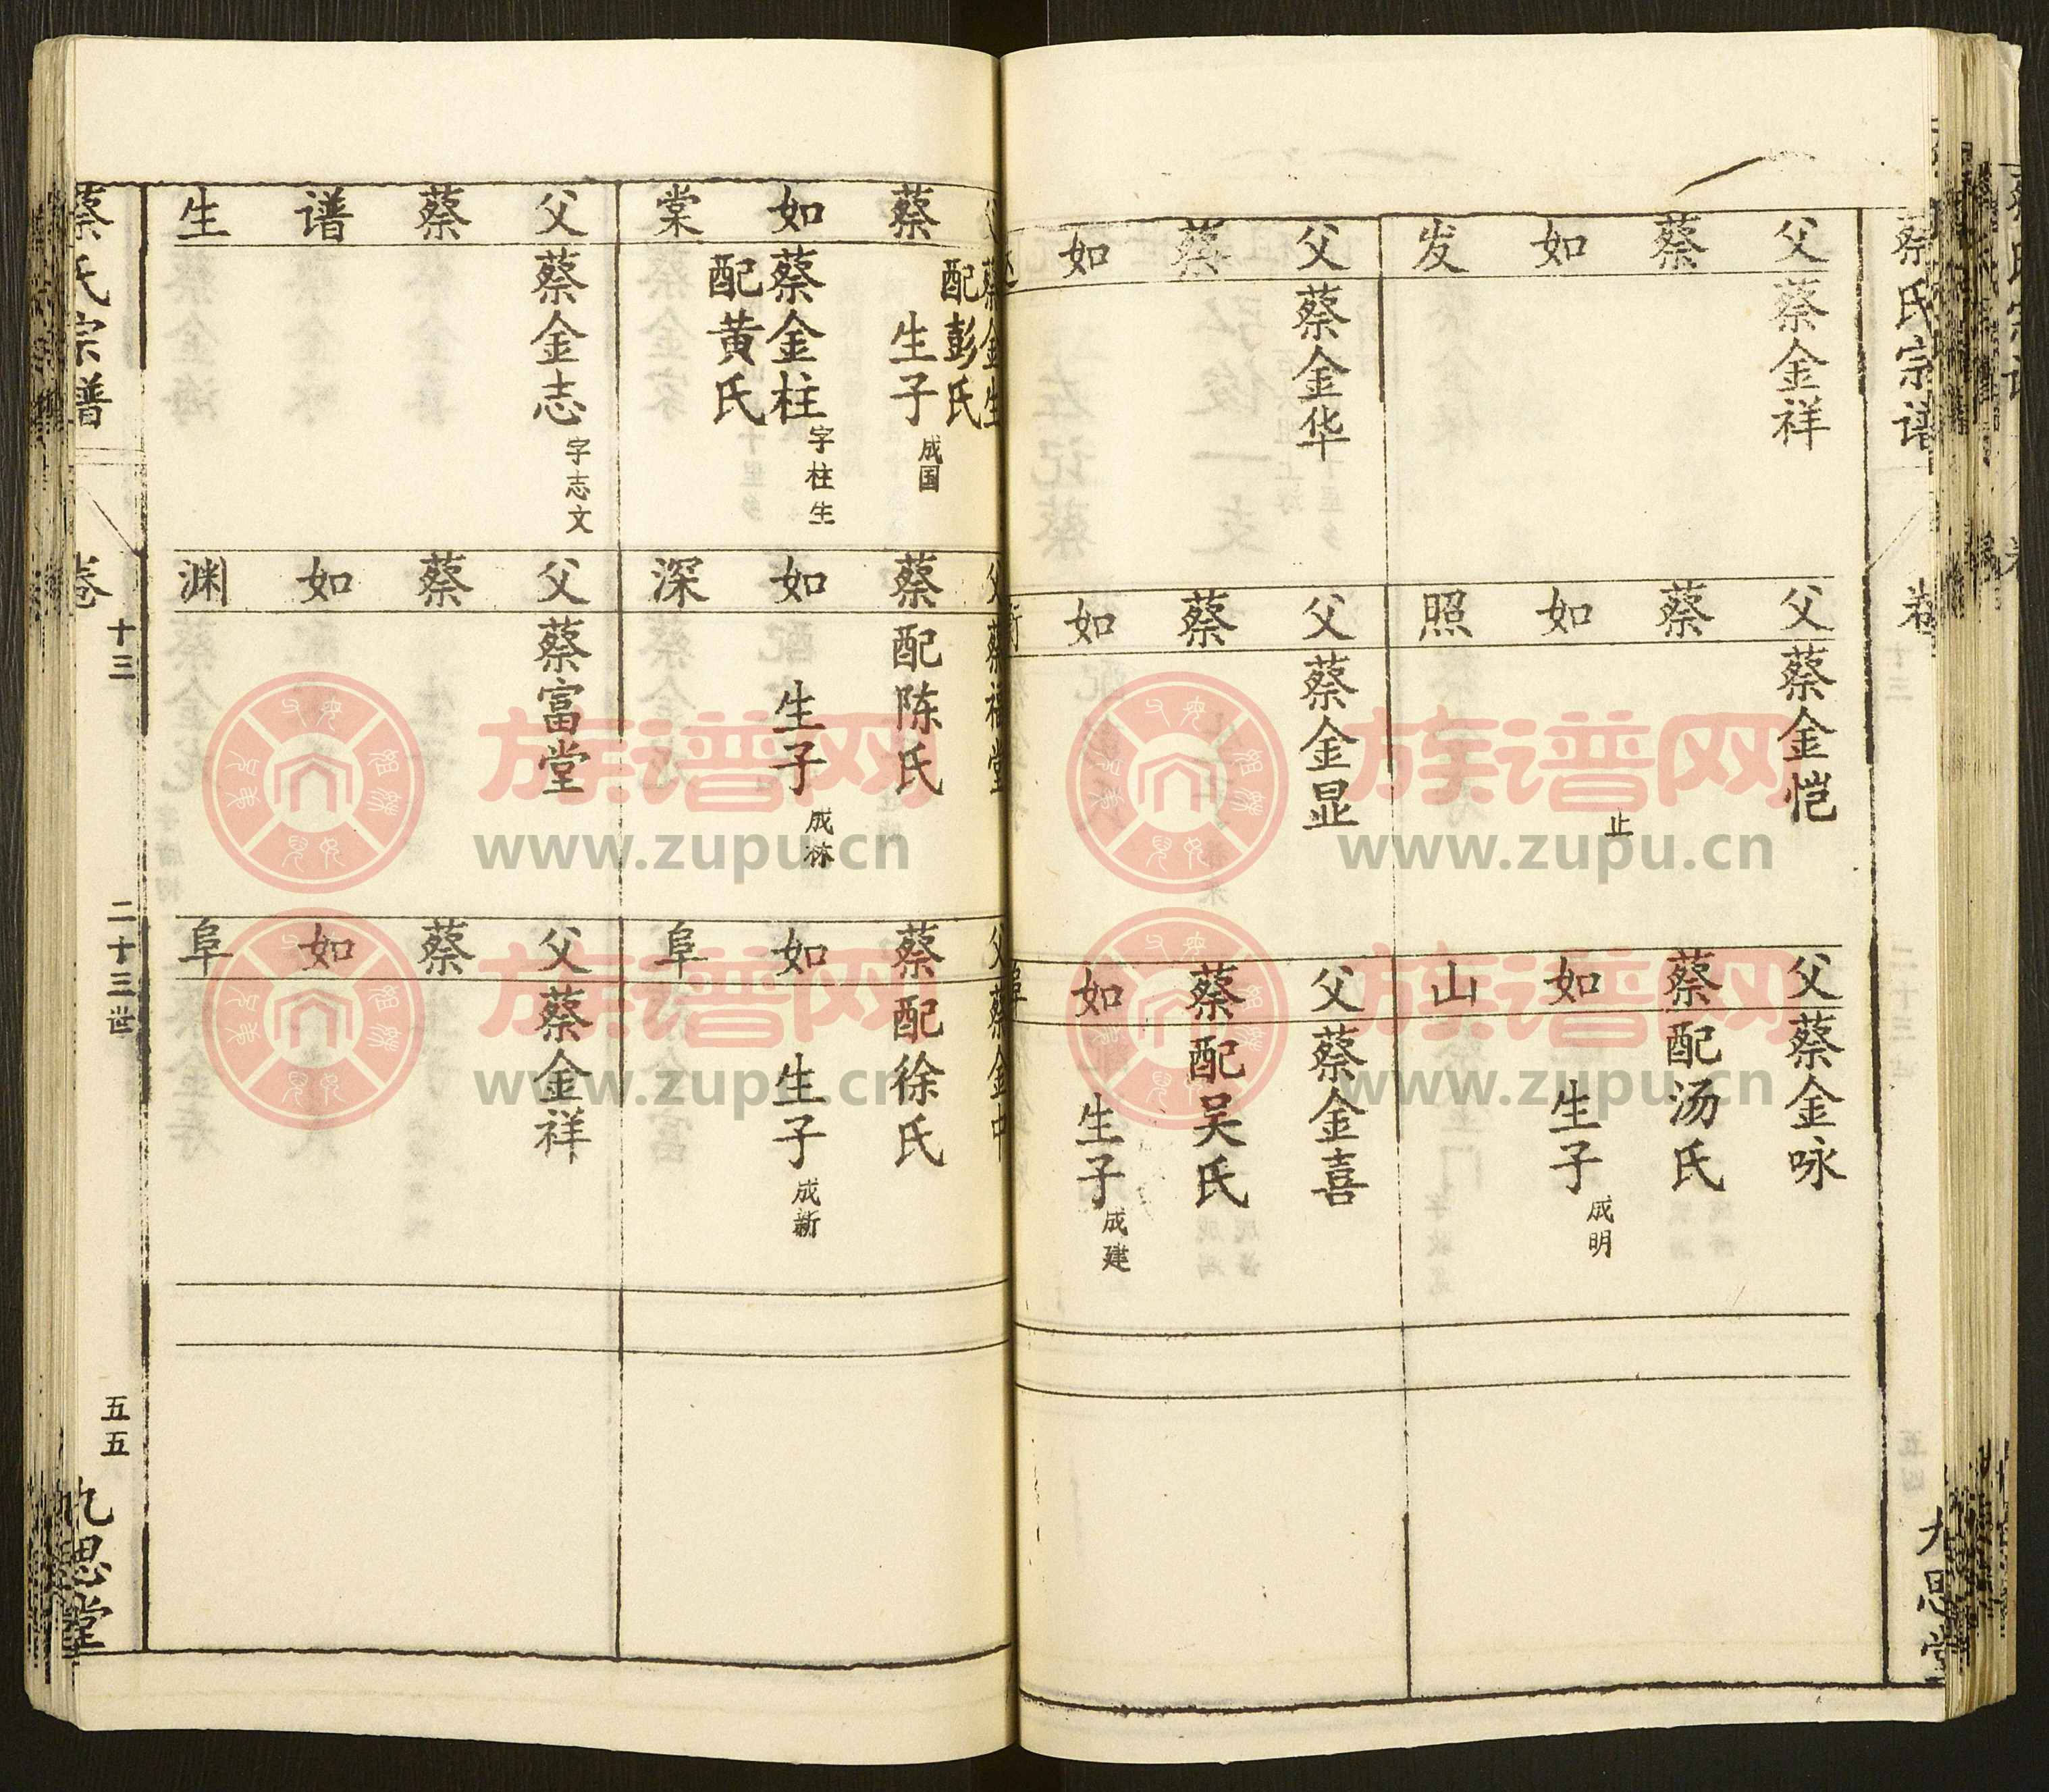 蔡氏宗谱
卷
父蔡如发
蔡金祥
父蔡如
蔡金华
父蔡如照
蔡金恺
止
父蔡如
蔡金显
父蔡如山
蔡金咏
配汤氏
生子
成明
父蔡如
蔡金喜
配吴氏
生子
成建
蔡如棠
蔡金生
配彭氏
生子
成国
蔡金柱
字柱生
配黄氏
父蔡谱生
蔡金志
字志文
父蔡如深
蔡福堂
配陈氏
生子
成林
父蔡如渊
蔡富堂
父蔡如阜
蔡金中
配徐氏
生子
成新
父蔡如阜
蔡金祥
蔡氏宗谱
卷
十三
二十三世
五五
九思堂
族谱网
www.zupu.cn
族谱网
www.zupu.cn
族谱网
www.zupu.cn
族谱网
www.zupu.cn